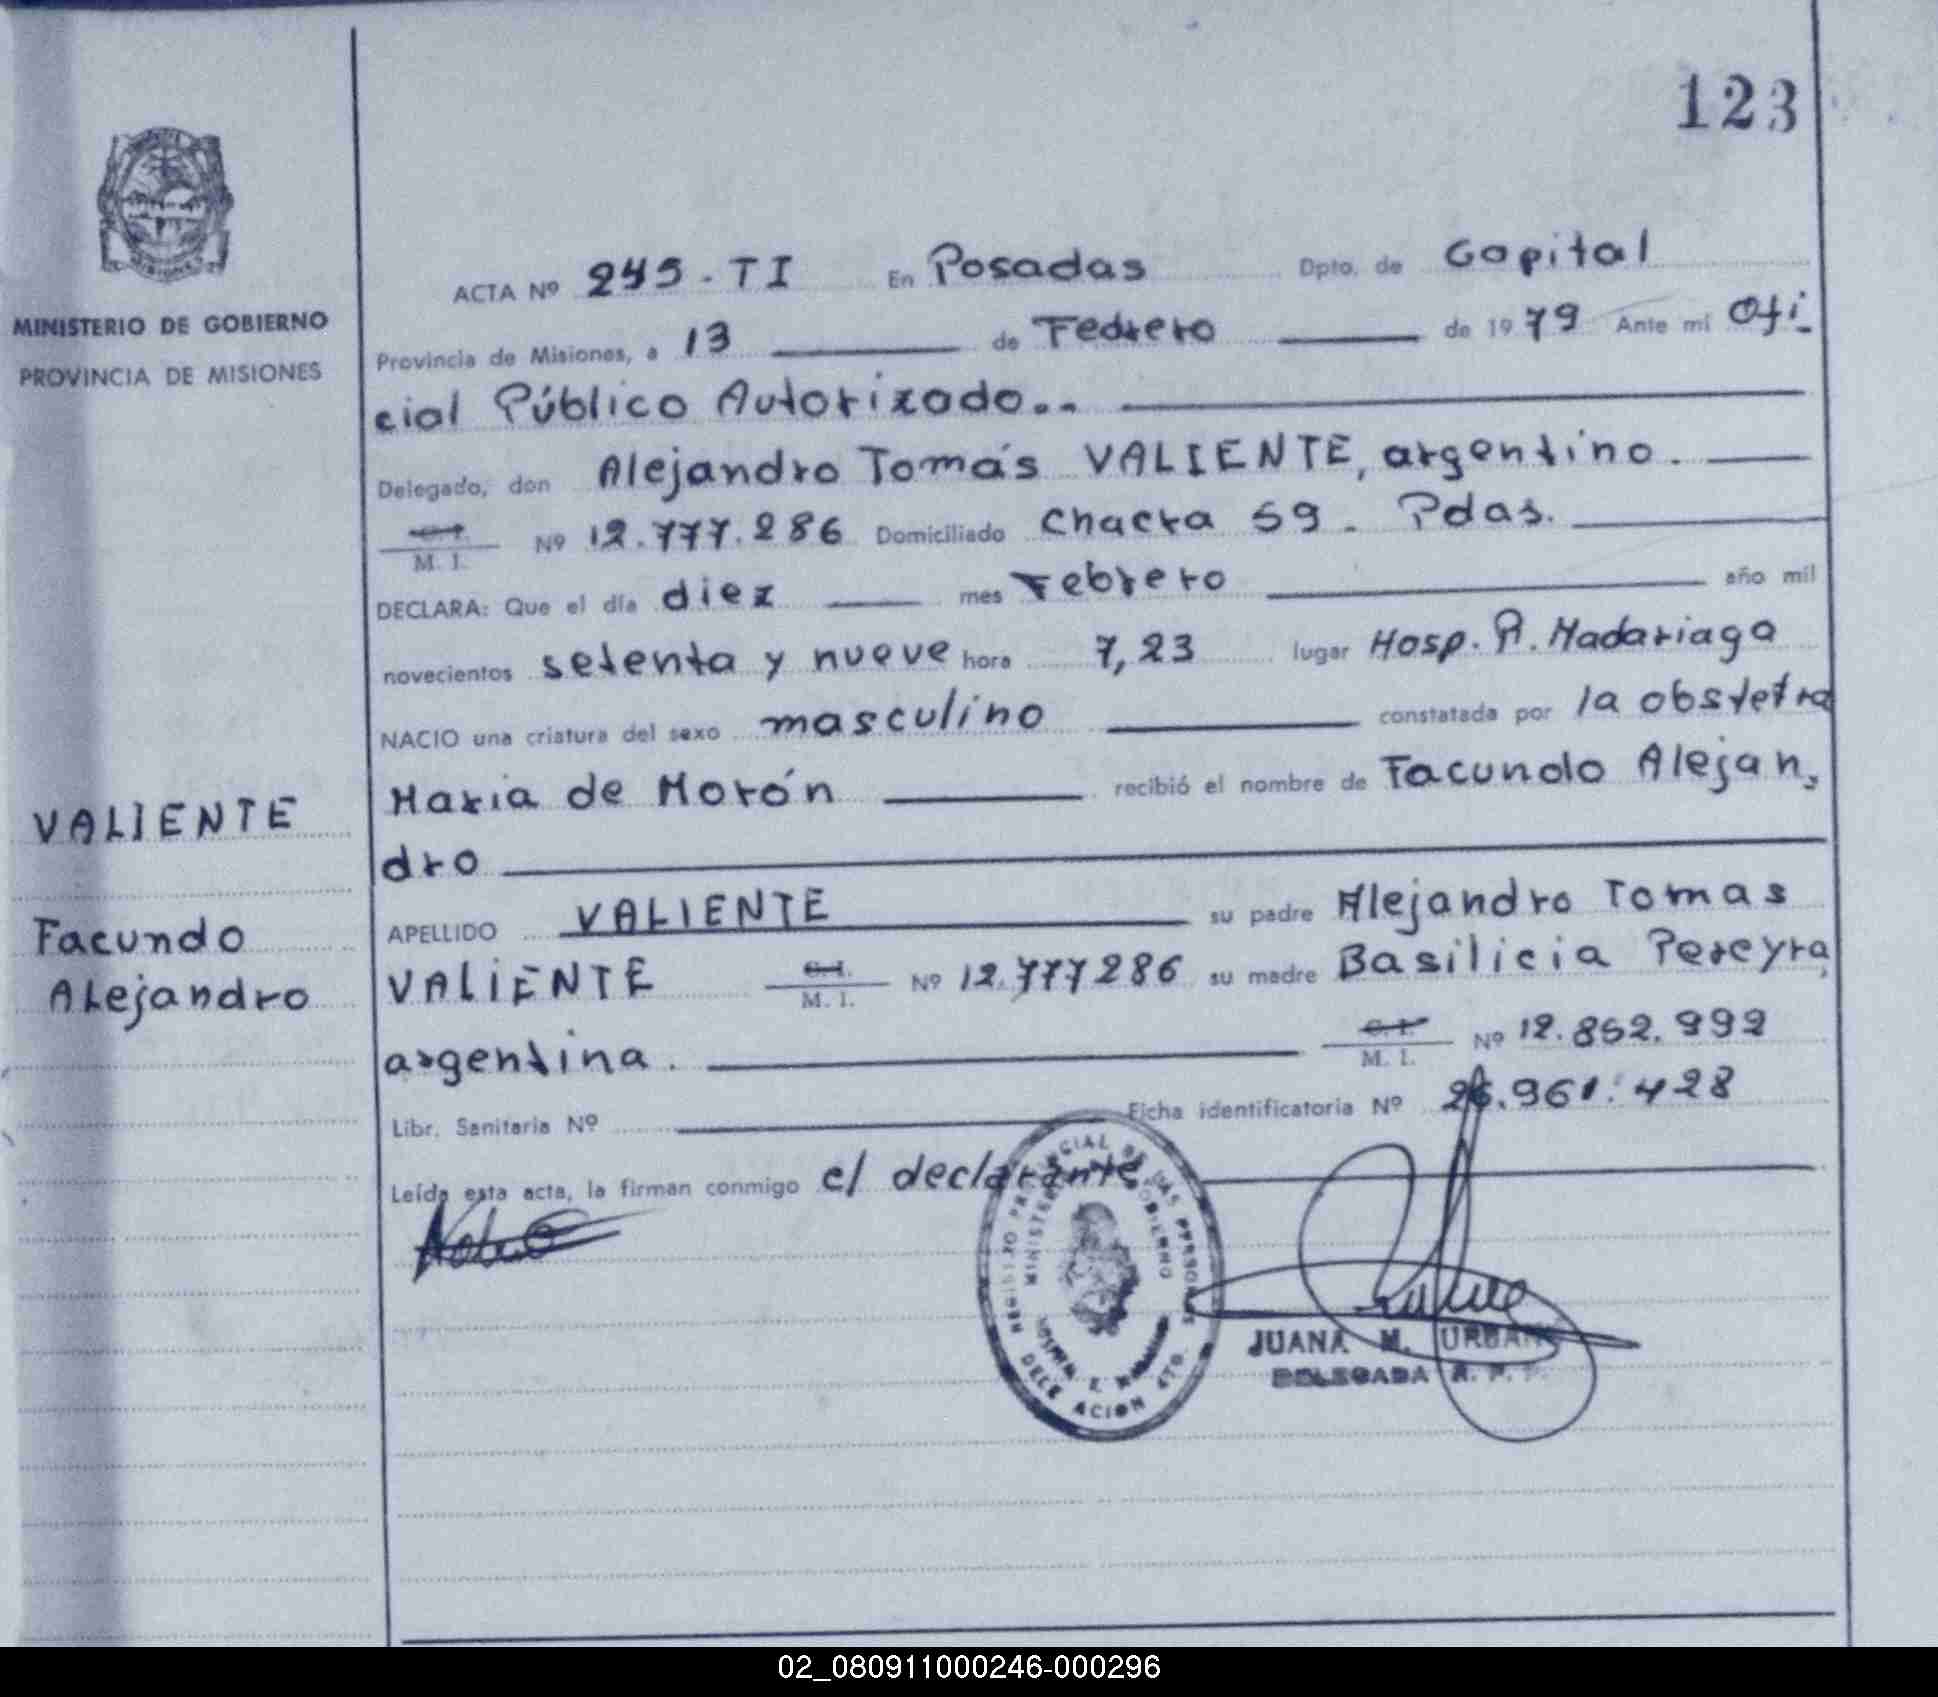 123
MINISTERIO DE GOBIERNO
PROVINCIA DE MISIONES
ACTA Nº 245-TI En Posadas Dpto. de Capital
Provincia de Misiones, a 13 de Febrero de 1979 Ante mi Ofi
cial Público Autorizado..
Delegado, don Alejandro Tomás VALIENTE, argentino.
C.I. M. I. Nº 12.777.286 Domiciliado Chacra 59. Pdas.
DECLARA: Que el día diez mes Febrero año mil
novecientos setenta y nueve hora 7,23 lugar Hosp. R. Madariaga
NACIO una criatura del sexo masculino constatada por la obstetra
Maria de Morón recibió el nombre de Facundo Alejan,
dro
VALIENTE
Facundo
Alejandro
APELLIDO VALIENTE su padre Alejandro Tomas
VALIENTE C.I. M. I. Nº 12.777286 su madre Basilicia Pereyra,
argentina. C.I. M. I. Nº 12.852.992
Libr. Sanitaria Nº Ficha identificatoria Nº 26.961.428
Leída esta acta, la firman conmigo el declarante
REGISTRO PROVINCIAL DE LAS PERSONAS
MINISTERIO GOBIERNO
DELEGACION 4TO.
JUANA M. URBAN
DELEGADA R. P.
02_080911000246-000296